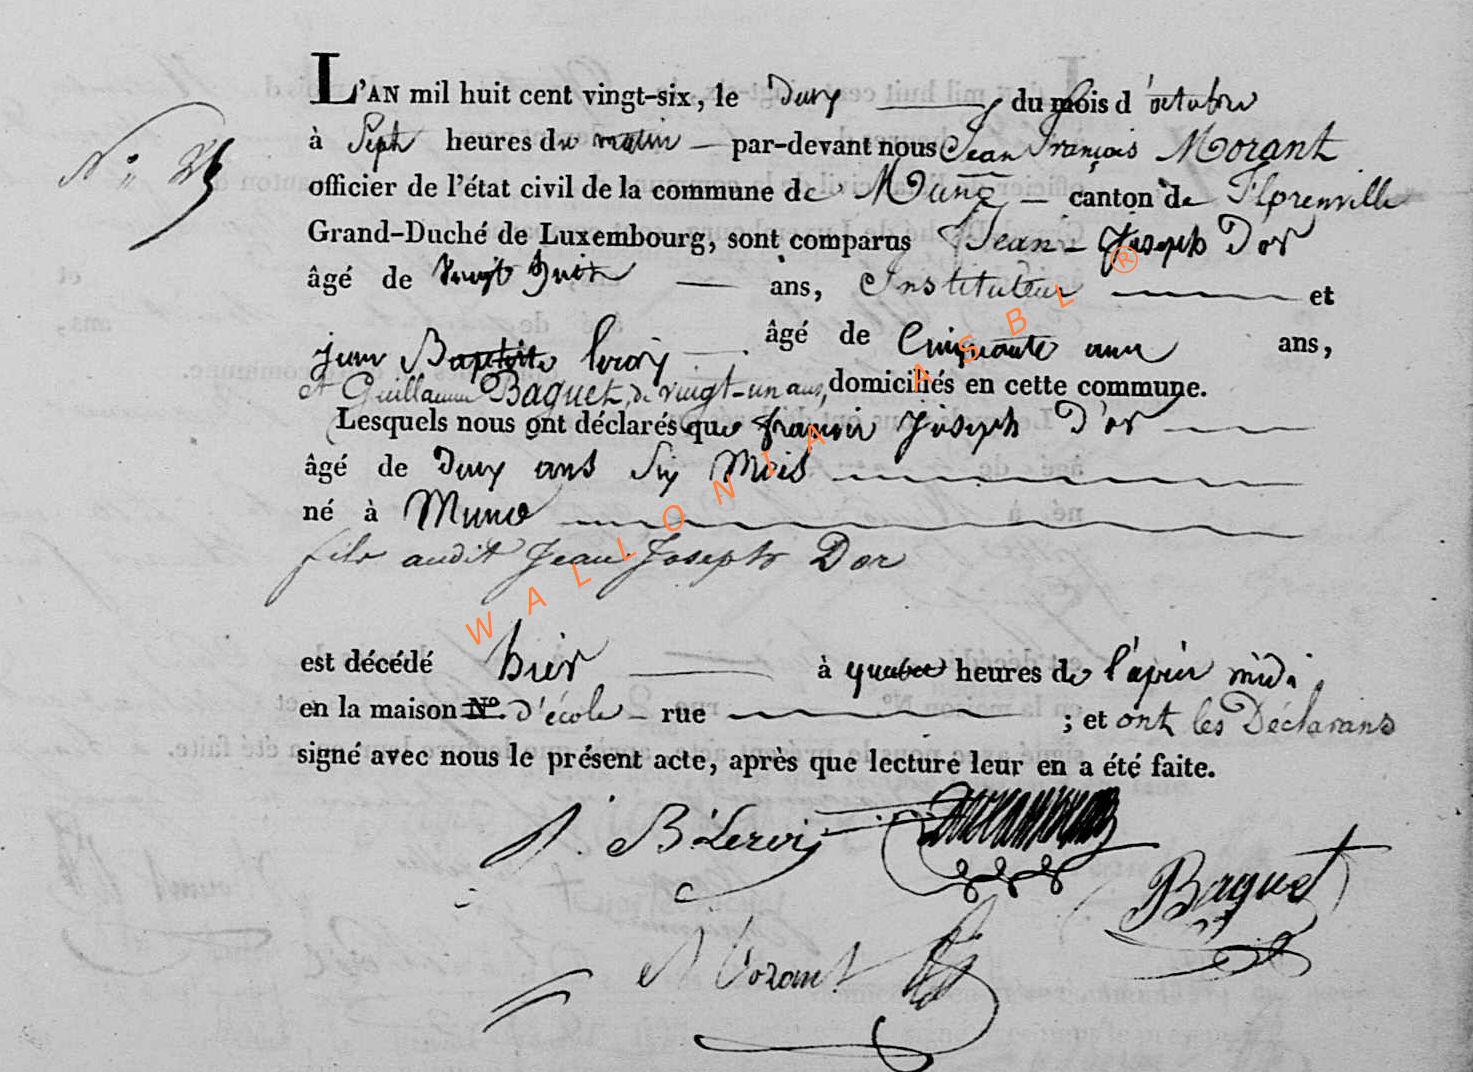 L'AN mil huit cent vingt-six, le deux du mois d'octobre
N° 25
à Sept heures du matin par-devant nous Jean François Morant
officier de l'état civil de la commune de Muno canton de Florenville
Grand-Duché de Luxembourg, sont comparus Jean-Joseph Dor
âgé de Vingt huit ans, Instituteur et
jean Baptiste leroy âgé de Cinquante ans,
et Guillaume Baguet, de vingt-un ans, domiciliés en cette commune.
Lesquels nous ont déclarés que françois joseph D'or
âgé de deux ans Six Mois
né à Muno
fils audit Jean Joseph Dor
est décédé hier à quatre heures de l'après midi
en la maison N° d'école rue ; et ont les Déclarans
signé avec nous le présent acte, après que lecture leur en a été faite.
J. B. Leroy
Baguet
Morant
WALLONIA ASBL ®